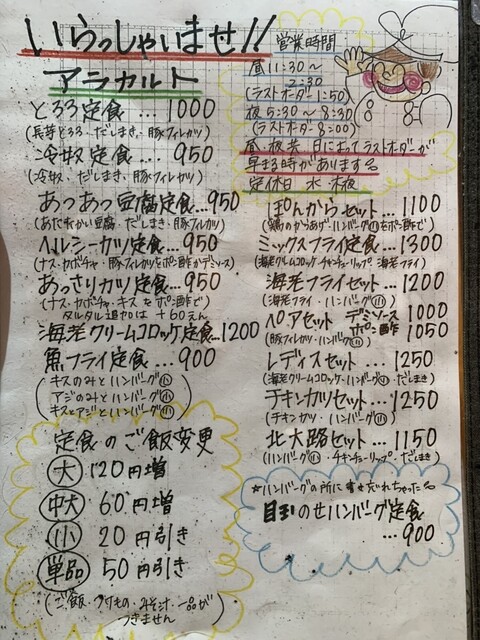 いらっしゃいませ!!
アラカルト
とろろ定食…1000
(長芋とろろ・だしまき・豚フィレカツ)
冷奴定食…950
(冷奴・だしまき・豚フィレカツ)
あつあつ豆腐定食…950
(あたたかい豆腐・だしまき・豚フィレカツ)
ヘルシーカツ定食…950
(ナス・カボチャ・豚フィレカツをポン酢かデミソース)
あっさりカツ定食…950
(ナス・カボチャ・キスをポン酢で)
タルタル追加は+60えん
海老クリームコロッケ定食…1200
魚フライ定食…900
(キスのみとハンバーグ小)
(アジのみとハンバーグ小)
(キスとアジとハンバーグ小)
定食のご飯変更
大 120円増
中大 60円増
小 20円引き
単品 50円引き
(ご飯・つけもの・みそ汁・一品が
つきません)
営業時間
昼11:30~
2:30
(ラストオーダー1:50)
夜5:30~8:30
(ラスト8:00)
昼・夜共 日によってラストオーダーが
早まる時があります。
定休日 水 木夜
ぽんからセット…1100
(鶏のからあげ・ハンバーグ小をポン酢で)
ミックスフライ定食…1300
(海老クリームコロッケ・チキンチューリップ・海老フライ)
海老フライセット…1200
(海老フライ・ハンバーグ小)
ペアセット デミソース 1000
ポン酢 1050
(豚フィレカツ・ハンバーグ小)
レディスセット…1250
(海老クリームコロッケ・ハンバーグ小・だしまき)
チキンカツセット…1250
(チキンカツ・ハンバーグ小)
北大路セット…1150
(ハンバーグ小・チキンチューリップ・だしまき)
*ハンバーグの所に書き忘れちゃった。
目玉のせハンバーグ定食
…900